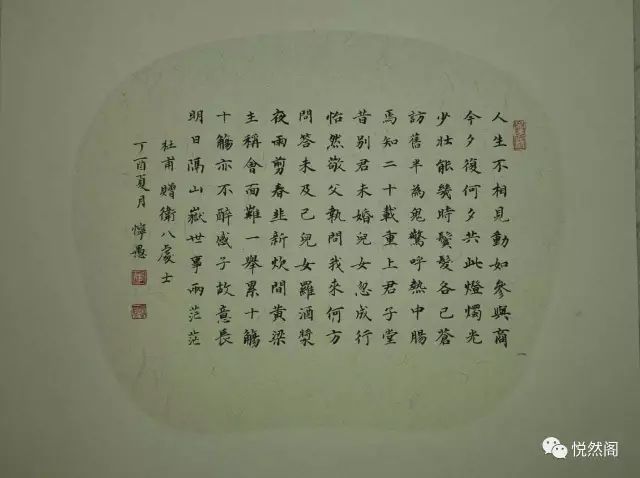 人生不相見動如參與商
今夕復何夕共此燈燭光
少壯能幾時鬢髮各已蒼
訪舊半為鬼驚呼熱中腸
焉知二十載重上君子堂
昔別君未婚兒女忽成行
怡然敬父執問我來何方
問答未及已兒女羅酒漿
夜雨剪春韭新炊間黃梁
主稱會面難一舉累十觴
十觴亦不醉感子故意長
明日隔山嶽世事兩茫茫
杜甫贈衛八處士
丁酉夏月
悦然阁